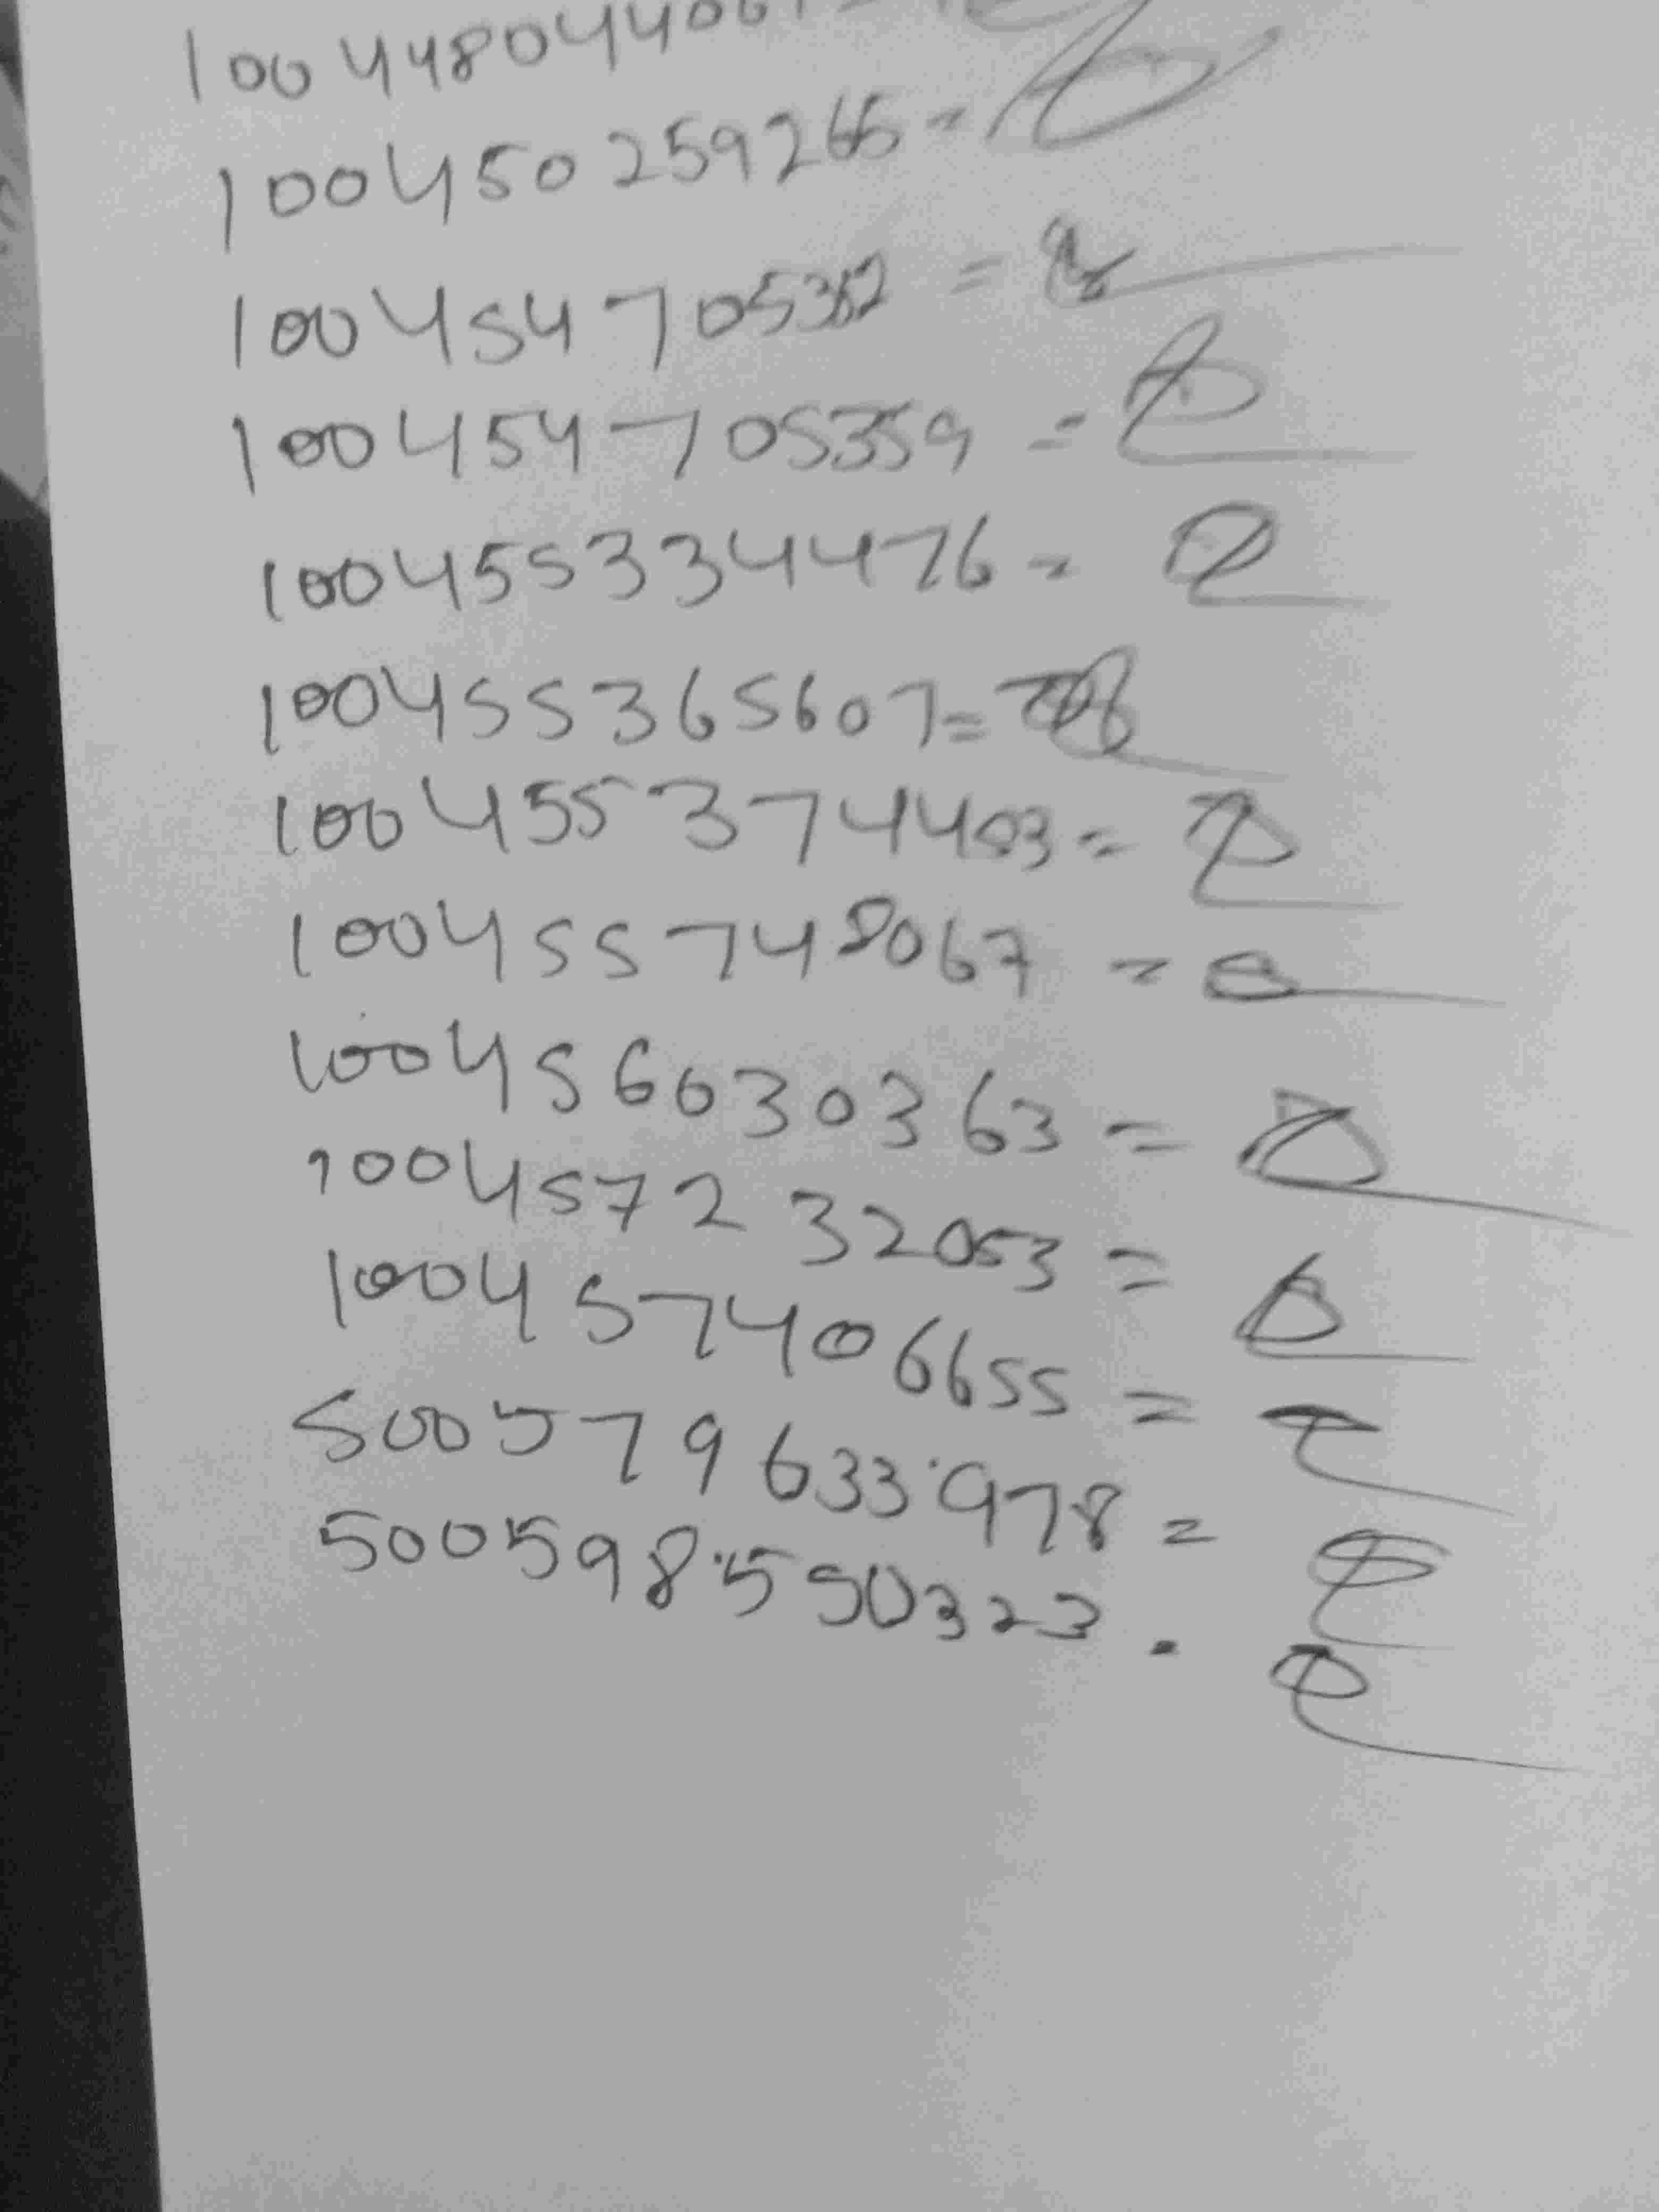 100448044061
100450259265 =
100454705352 =
100454705359 =
100455334476 =
100455365607 =
100455374403 =
100455748067 =
100456630363 =
100457232053 =
100457406655 =
500579633978 =
500598550323